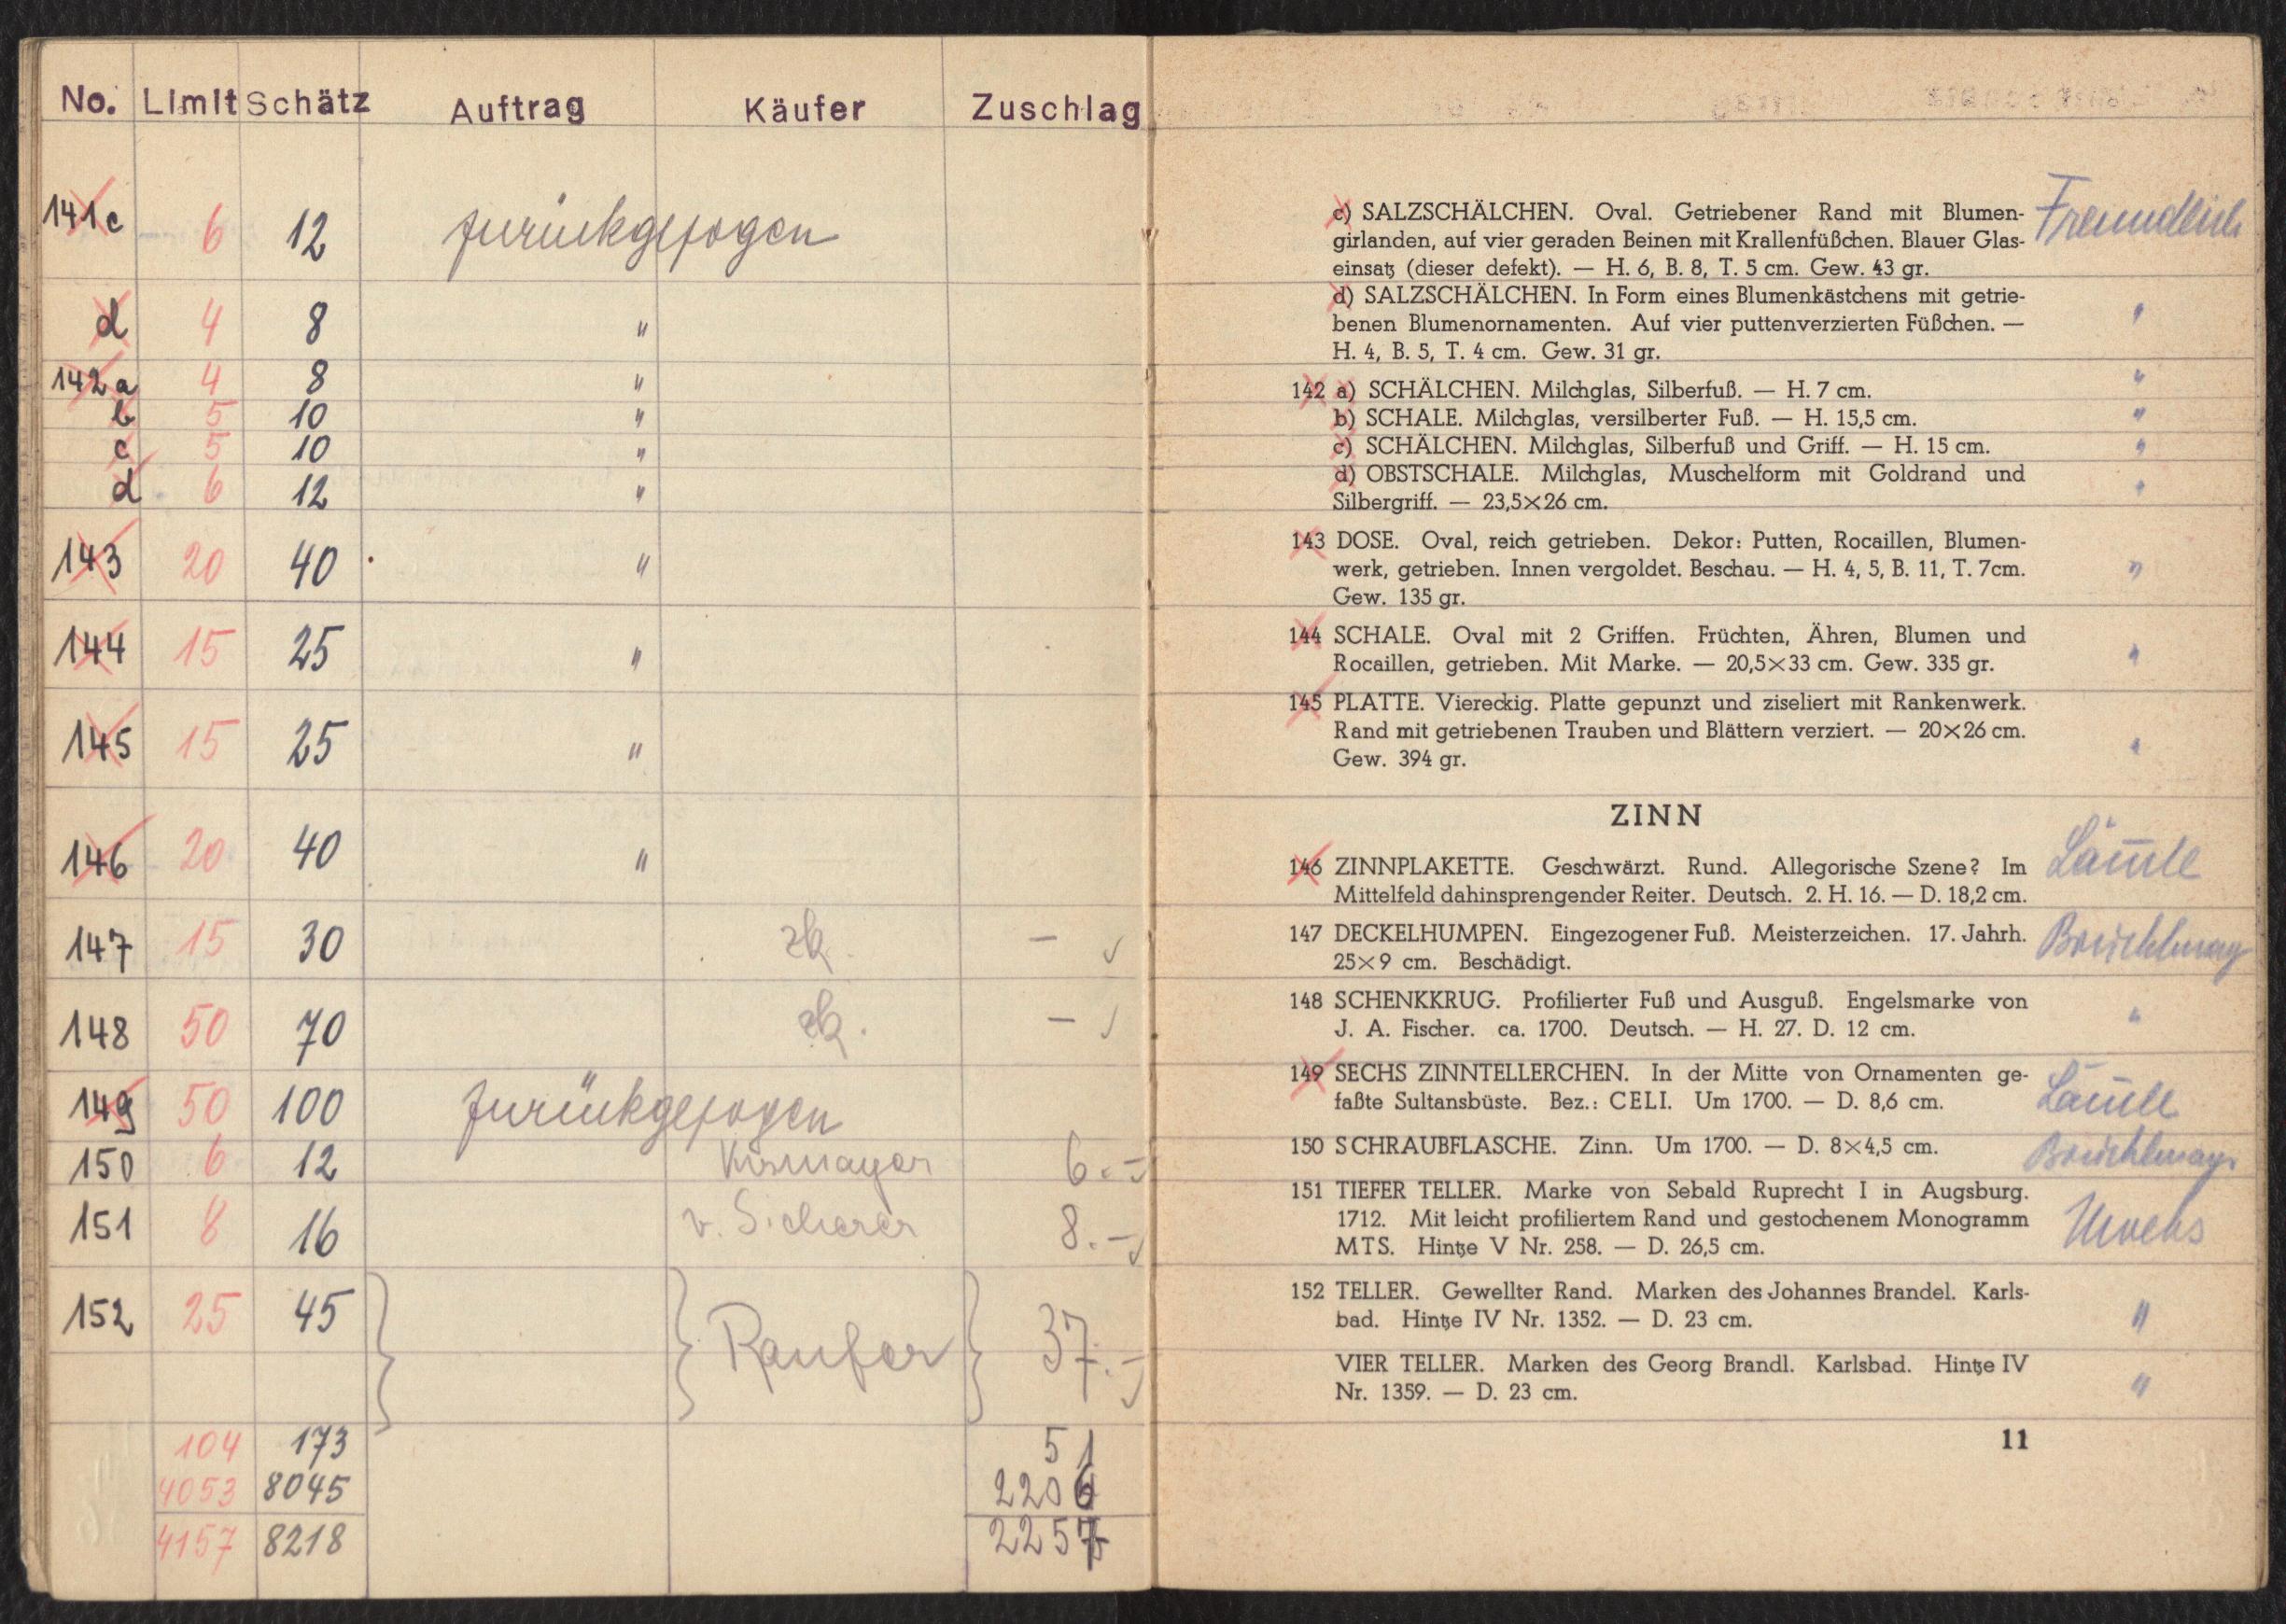 No. Limit Schätz Auftrag Käufer Zuschlag
141c 6 12 zurückgezogen
d 4 8 "
142a 4 8 "
b 5 10 "
c 5 10 "
d 6 12 "
143 20 40 "
144 15 25 "
145 15 25 "
146 20 40 "
147 15 30 zk. — ✓
148 50 70 zk. — ✓
149 50 100 zurückgezogen
150 6 12 6.— ✓
151 8 16 v. Sicherer 8.— ✓
152 25 45 37.— ✓
104 173 51
4053 8045 2206
4157 8218 2257
c) SALZSCHÄLCHEN. Oval. Getriebener Rand mit Blumen- Freundlich
girlanden, auf vier geraden Beinen mit Krallenfüßchen. Blauer Glas-
einsatz (dieser defekt). — H. 6, B. 8, T. 5 cm. Gew. 43 gr.
d) SALZSCHÄLCHEN. In Form eines Blumenkästchens mit getrie- "
benen Blumenornamenten. Auf vier puttenverzierten Füßchen. —
H. 4, B. 5, T. 4 cm. Gew. 31 gr.
142 a) SCHÄLCHEN. Milchglas, Silberfuß. — H. 7 cm. "
b) SCHALE. Milchglas, versilberter Fuß. — H. 15,5 cm. "
c) SCHÄLCHEN. Milchglas, Silberfuß und Griff. — H. 15 cm. "
d) OBSTSCHALE. Milchglas, Muschelform mit Goldrand und "
Silbergriff. — 23,5×26 cm.
143 DOSE. Oval, reich getrieben. Dekor: Putten, Rocaillen, Blumen-
werk, getrieben. Innen vergoldet. Beschau. — H. 4, 5, B. 11, T. 7cm. "
Gew. 135 gr.
144 SCHALE. Oval mit 2 Griffen. Früchten, Ähren, Blumen und
Rocaillen, getrieben. Mit Marke. — 20,5×33 cm. Gew. 335 gr. "
145 PLATTE. Viereckig. Platte gepunzt und ziseliert mit Rankenwerk.
Rand mit getriebenen Trauben und Blättern verziert. — 20×26 cm. "
Gew. 394 gr.
ZINN
146 ZINNPLAKETTE. Geschwärzt. Rund. Allegorische Szene? Im
Mittelfeld dahinsprengender Reiter. Deutsch. 2. H. 16. — D. 18,2 cm.
147 DECKELHUMPEN. Eingezogener Fuß. Meisterzeichen. 17. Jahrh.
25×9 cm. Beschädigt.
148 SCHENKKRUG. Profilierter Fuß und Ausguß. Engelsmarke von "
J. A. Fischer. ca. 1700. Deutsch. — H. 27. D. 12 cm.
149 SECHS ZINNTELLERCHEN. In der Mitte von Ornamenten ge-
faßte Sultansbüste. Bez.: CELI. Um 1700. — D. 8,6 cm.
150 SCHRAUBFLASCHE. Zinn. Um 1700. — D. 8×4,5 cm.
151 TIEFER TELLER. Marke von Sebald Ruprecht I in Augsburg.
1712. Mit leicht profiliertem Rand und gestochenem Monogramm
MTS. Hintze V Nr. 258. — D. 26,5 cm.
152 TELLER. Gewellter Rand. Marken des Johannes Brandel. Karls-
bad. Hintze IV Nr. 1352. — D. 23 cm. "
VIER TELLER. Marken des Georg Brandl. Karlsbad. Hintze IV
Nr. 1359. — D. 23 cm. "
11